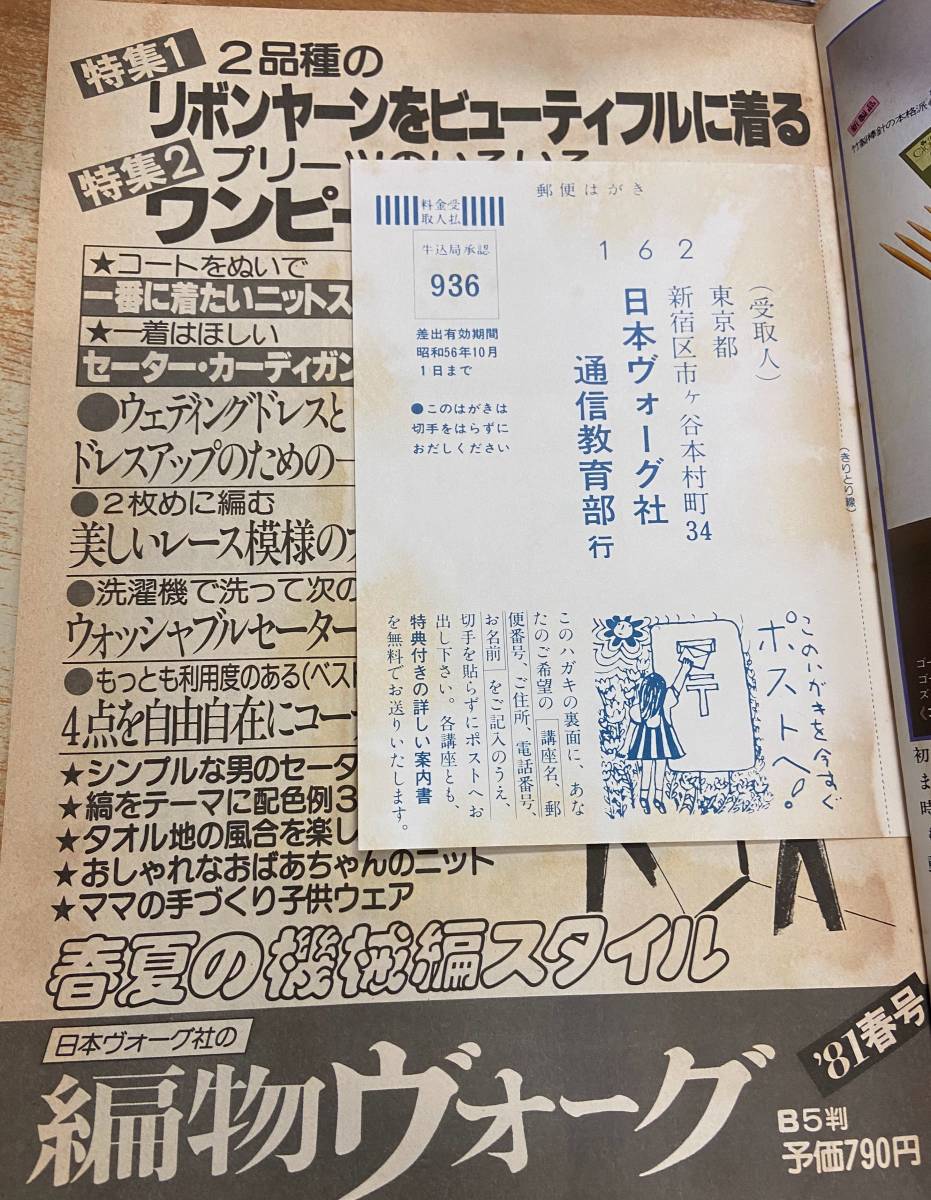 特集1
2品種の
リボンヤーンをビューティフルに着る
特集2
プリーツのいろいろ
ワンピー
★コートをぬいで
一番に着たいニットス
★一着はほしい
セーター・カーディガン
●ウェディングドレスと
ドレスアップのための一
●2枚めに編む
美しいレース模様の
●洗濯機で洗って次の
ウォッシャブルセーター
●もっとも利用度のある(ベスト
4点を自由自在にコー
★シンプルな男のセータ
★縞をテーマに配色例3
★タオル地の風合を楽し
★おしゃれなおばあちゃんのニット
★ママの手づくり子供ウェア
春夏の機械編スタイル
日本ヴォーグ社の
編物ヴォーグ
'81春号
B5判
予価790円
郵便はがき
料金受
取人払
牛込局承認
936
差出有効期間
昭和56年10月
1日まで
●このはがきは
切手をはらずに
おだしください
162
(受取人)
東京都
新宿区市ヶ谷本村町34
日本ヴォーグ社
通信教育部 行
このハガキの裏面に、あな
たのご希望の 講座名、郵
便番号、ご住所、電話番号、
お名前 をご記入のうえ、
切手を貼らずにポストへお
出し下さい。各講座とも、
特典付きの詳しい案内書
を無料でお送りいたします。
このハガキを今すぐ
ポストへ!
(きりとり線)
竹製棒針の本格派